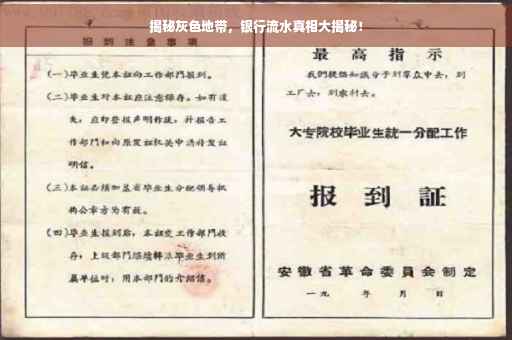 揭秘灰色地带，银行流水真相大揭秘！
报到注意事项
(一)毕业生凭本证向工作部门报到。
(二)毕业生对本证应注意保存。如有遗
失，应即登报声明作废，并报告工
作部门和向原发证机关申请补发证
明信。
(三)本证必须加盖省毕业生分配领导机
构公章方为有效。
(四)毕业生报到后，本证交工作部门收
存；上级部门
单位时，用本部门的介绍信。
最高指示
我们提倡知识分子到群众中去，到
工厂去，到农村去。
大专院校毕业生统一分配工作
报到証
安徽省革命委員会制定
一九 年 月 日